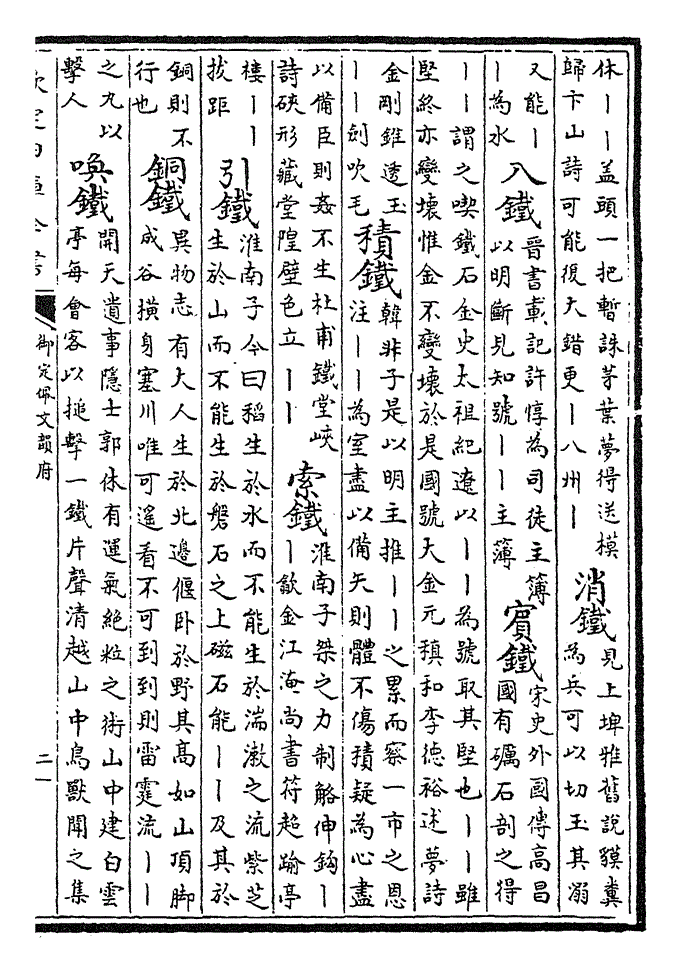 休丨丨蓋頭一把暫誅茅葉夢得送模
歸卞山詩可能復大錯更丨八州丨
消鐵
見上埤雅舊說貘糞
為兵可以切玉其溺
又能丨
丨為水
八鐵
晉書載記許惇為司徒主簿
以明斷見知號丨丨主簿
賓鐵
宋史外國傳高昌
國有礪石剖之得
丨丨謂之喫鐵石金史太祖紀遼以丨丨為號取其堅也丨丨雖
堅終亦變壞惟金不變壞於是國號大金元稹和李德裕述夢詩
金剛錐透玉
丨丨劍吹毛
積鐵
韓非子是以明主推丨丨之累而察一市之恩
注丨丨為室盡以備矢則體不傷積疑為心盡
以備臣則姦不生杜甫鐵堂峽
詩硤形藏堂隍壁色立丨丨
索鐵
淮南子桀之力制觡伸鈎丨
丨歙金江淹尚書符超踰亭
樓丨丨
拔距
引鐵
淮南子今曰稻生於水而不能生於湍瀨之流紫芝
生於山而不能生於磐石之上磁石能丨丨及其於
銅則不
行也
銅鐵
異物志有大人生於北邊偃卧於野其高如山頂脚
成谷横身塞川唯可遙看不可到到則雷霆流丨丨
之丸以
擊人
喚鐵
開天遺事隱士郭休有運氣絶粒之術山中建白雲
亭每會客以搥擊一鐵片聲清越山中鳥獸聞之集
欽定四庫全書
御定佩文韻府
二一